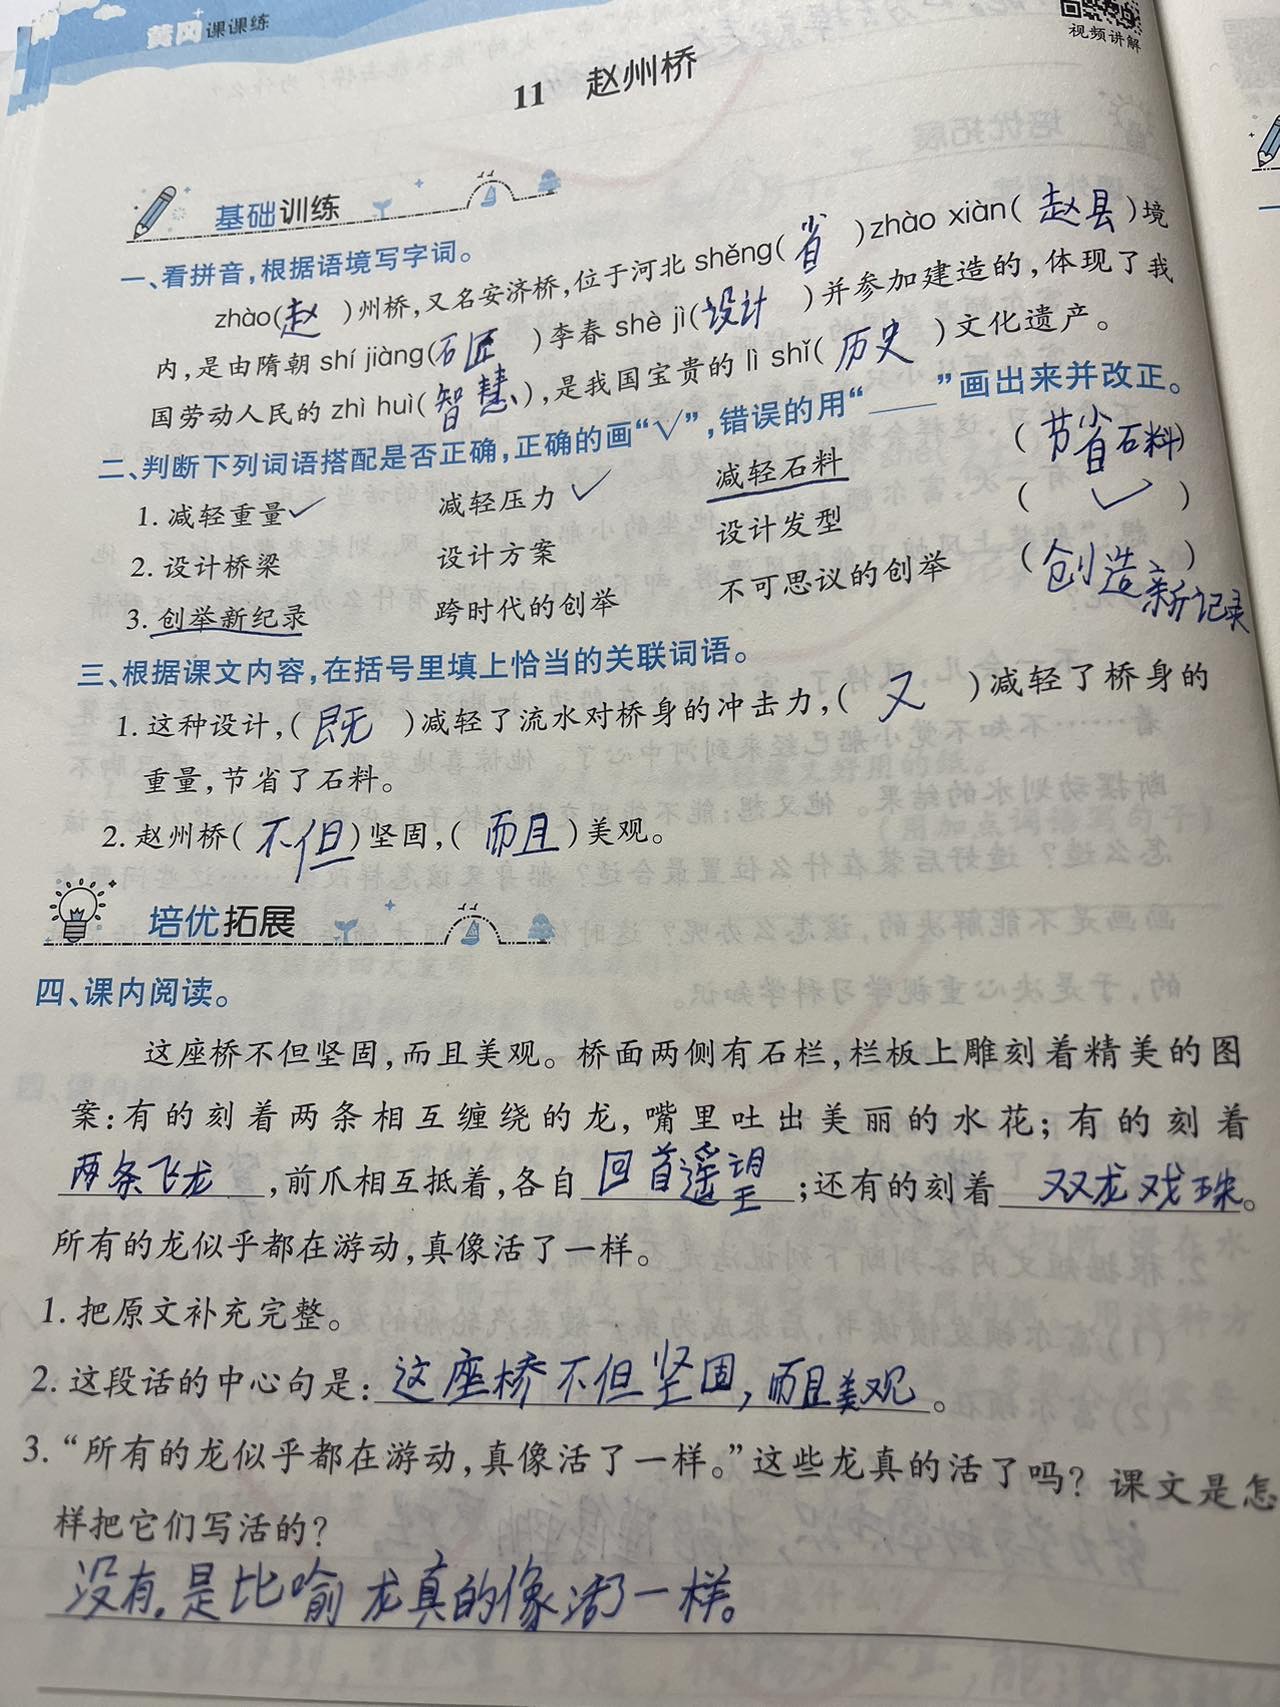 黄冈课课练
视频讲解
11 赵州桥
基础训练
一、看拼音，根据语境写字词。
zhào(赵)州桥，又名安济桥，位于河北 shěng(省)zhào xiàn(赵县)境
内，是由隋朝 shí jiàng(石匠)李春 shè jì(设计)并参加建造的，体现了我
国劳动人民的 zhì huì(智慧)，是我国宝贵的 lì shǐ(历史)文化遗产。
二、判断下列词语搭配是否正确，正确的画“√”，错误的用“____”画出来并改正。
1. 减轻重量✓ 减轻压力✓ 减轻石料 (节省石料)
2. 设计桥梁 设计方案 设计发型 (✓)
3. 创举新纪录 跨时代的创举 不可思议的创举 (创造新记录)
三、根据课文内容，在括号里填上恰当的关联词语。
1. 这种设计，(既)减轻了流水对桥身的冲击力，(又)减轻了桥身的
重量，节省了石料。
2. 赵州桥(不但)坚固，(而且)美观。
培优拓展
四、课内阅读。
这座桥不但坚固，而且美观。桥面两侧有石栏，栏板上雕刻着精美的图
案：有的刻着两条相互缠绕的龙，嘴里吐出美丽的水花；有的刻着
两条飞龙，前爪相互抵着，各自回首遥望；还有的刻着双龙戏珠。
所有的龙似乎都在游动，真像活了一样。
1. 把原文补充完整。
2. 这段话的中心句是：这座桥不但坚固，而且美观。
3. “所有的龙似乎都在游动，真像活了一样。”这些龙真的活了吗？课文是怎
样把它们写活的？
没有。是比喻龙真的像活了一样。